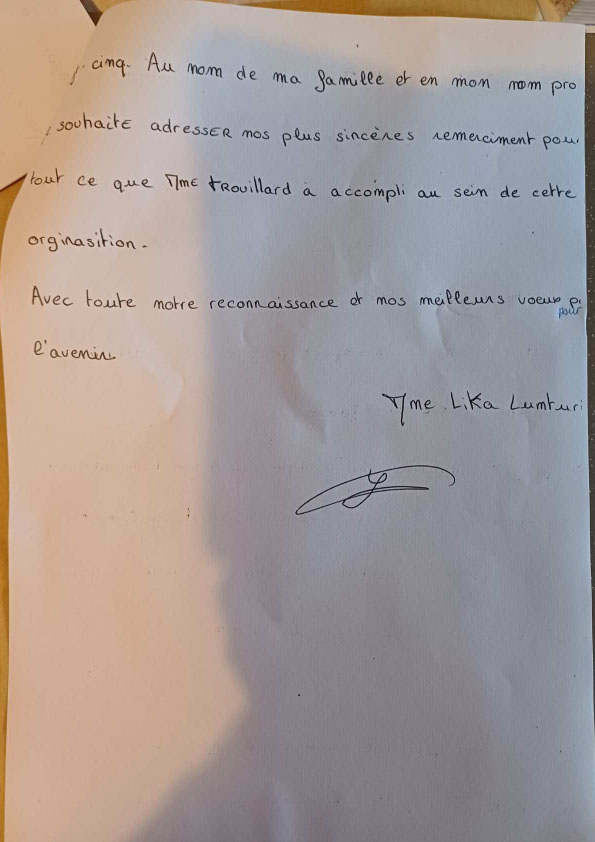 cinq. Au nom de ma famille et en mon nom pro
souhaite adresser nos plus sincères remerciment pour
tout ce que Mme trouillard à accompli au sein de cette
orginasition.
Avec toute notre reconnaissance et mos meilleurs voeux p
pour
l'avenir
Mme LiKa Lumturi